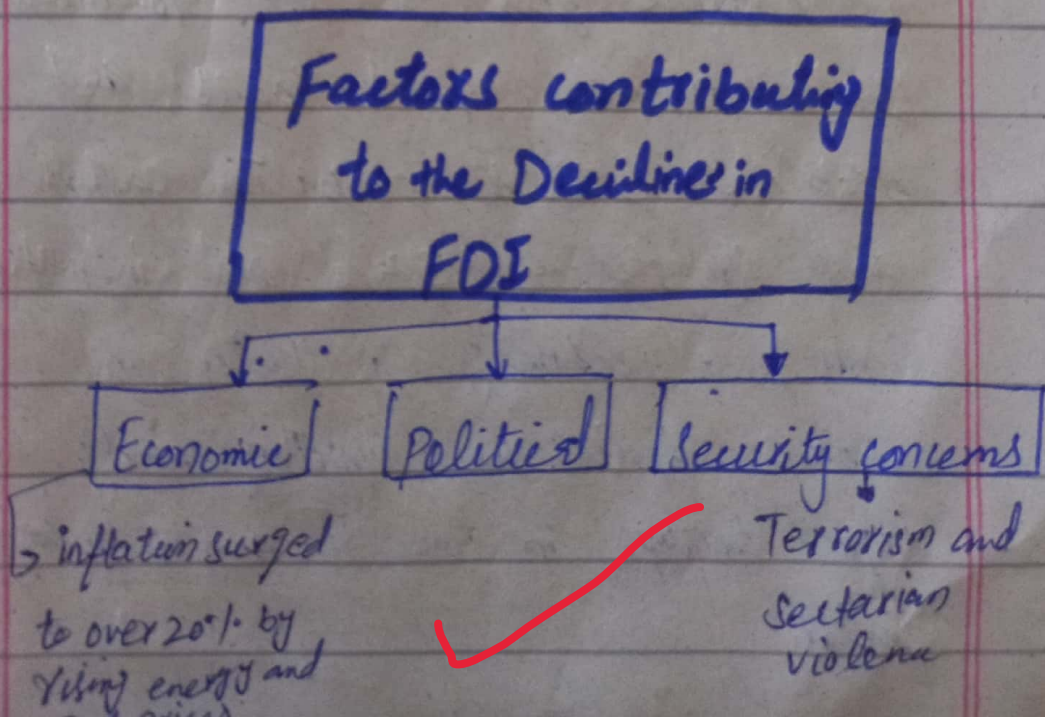 Factors contributing
to the Deciliner in
FDI
Economic
Political
Security concerns
inflation surged
to over 20% by
rising energy and
Terrorism and
sectarian
violence